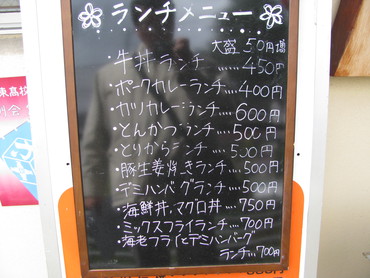 ランチメニュー
大盛 50円増
・牛丼ランチ....450円
・ポークカレーランチ....400円
・カツカレーランチ....600円
・とんかつランチ....500円
・とりからランチ....500円
・豚生姜焼きランチ....500円
・デミハンバグランチ....500円
・海鮮丼、マグロ丼....750円
・ミックスフライランチ....700円
・海老フライとデミハンバーグ
ランチ...700円
東高校